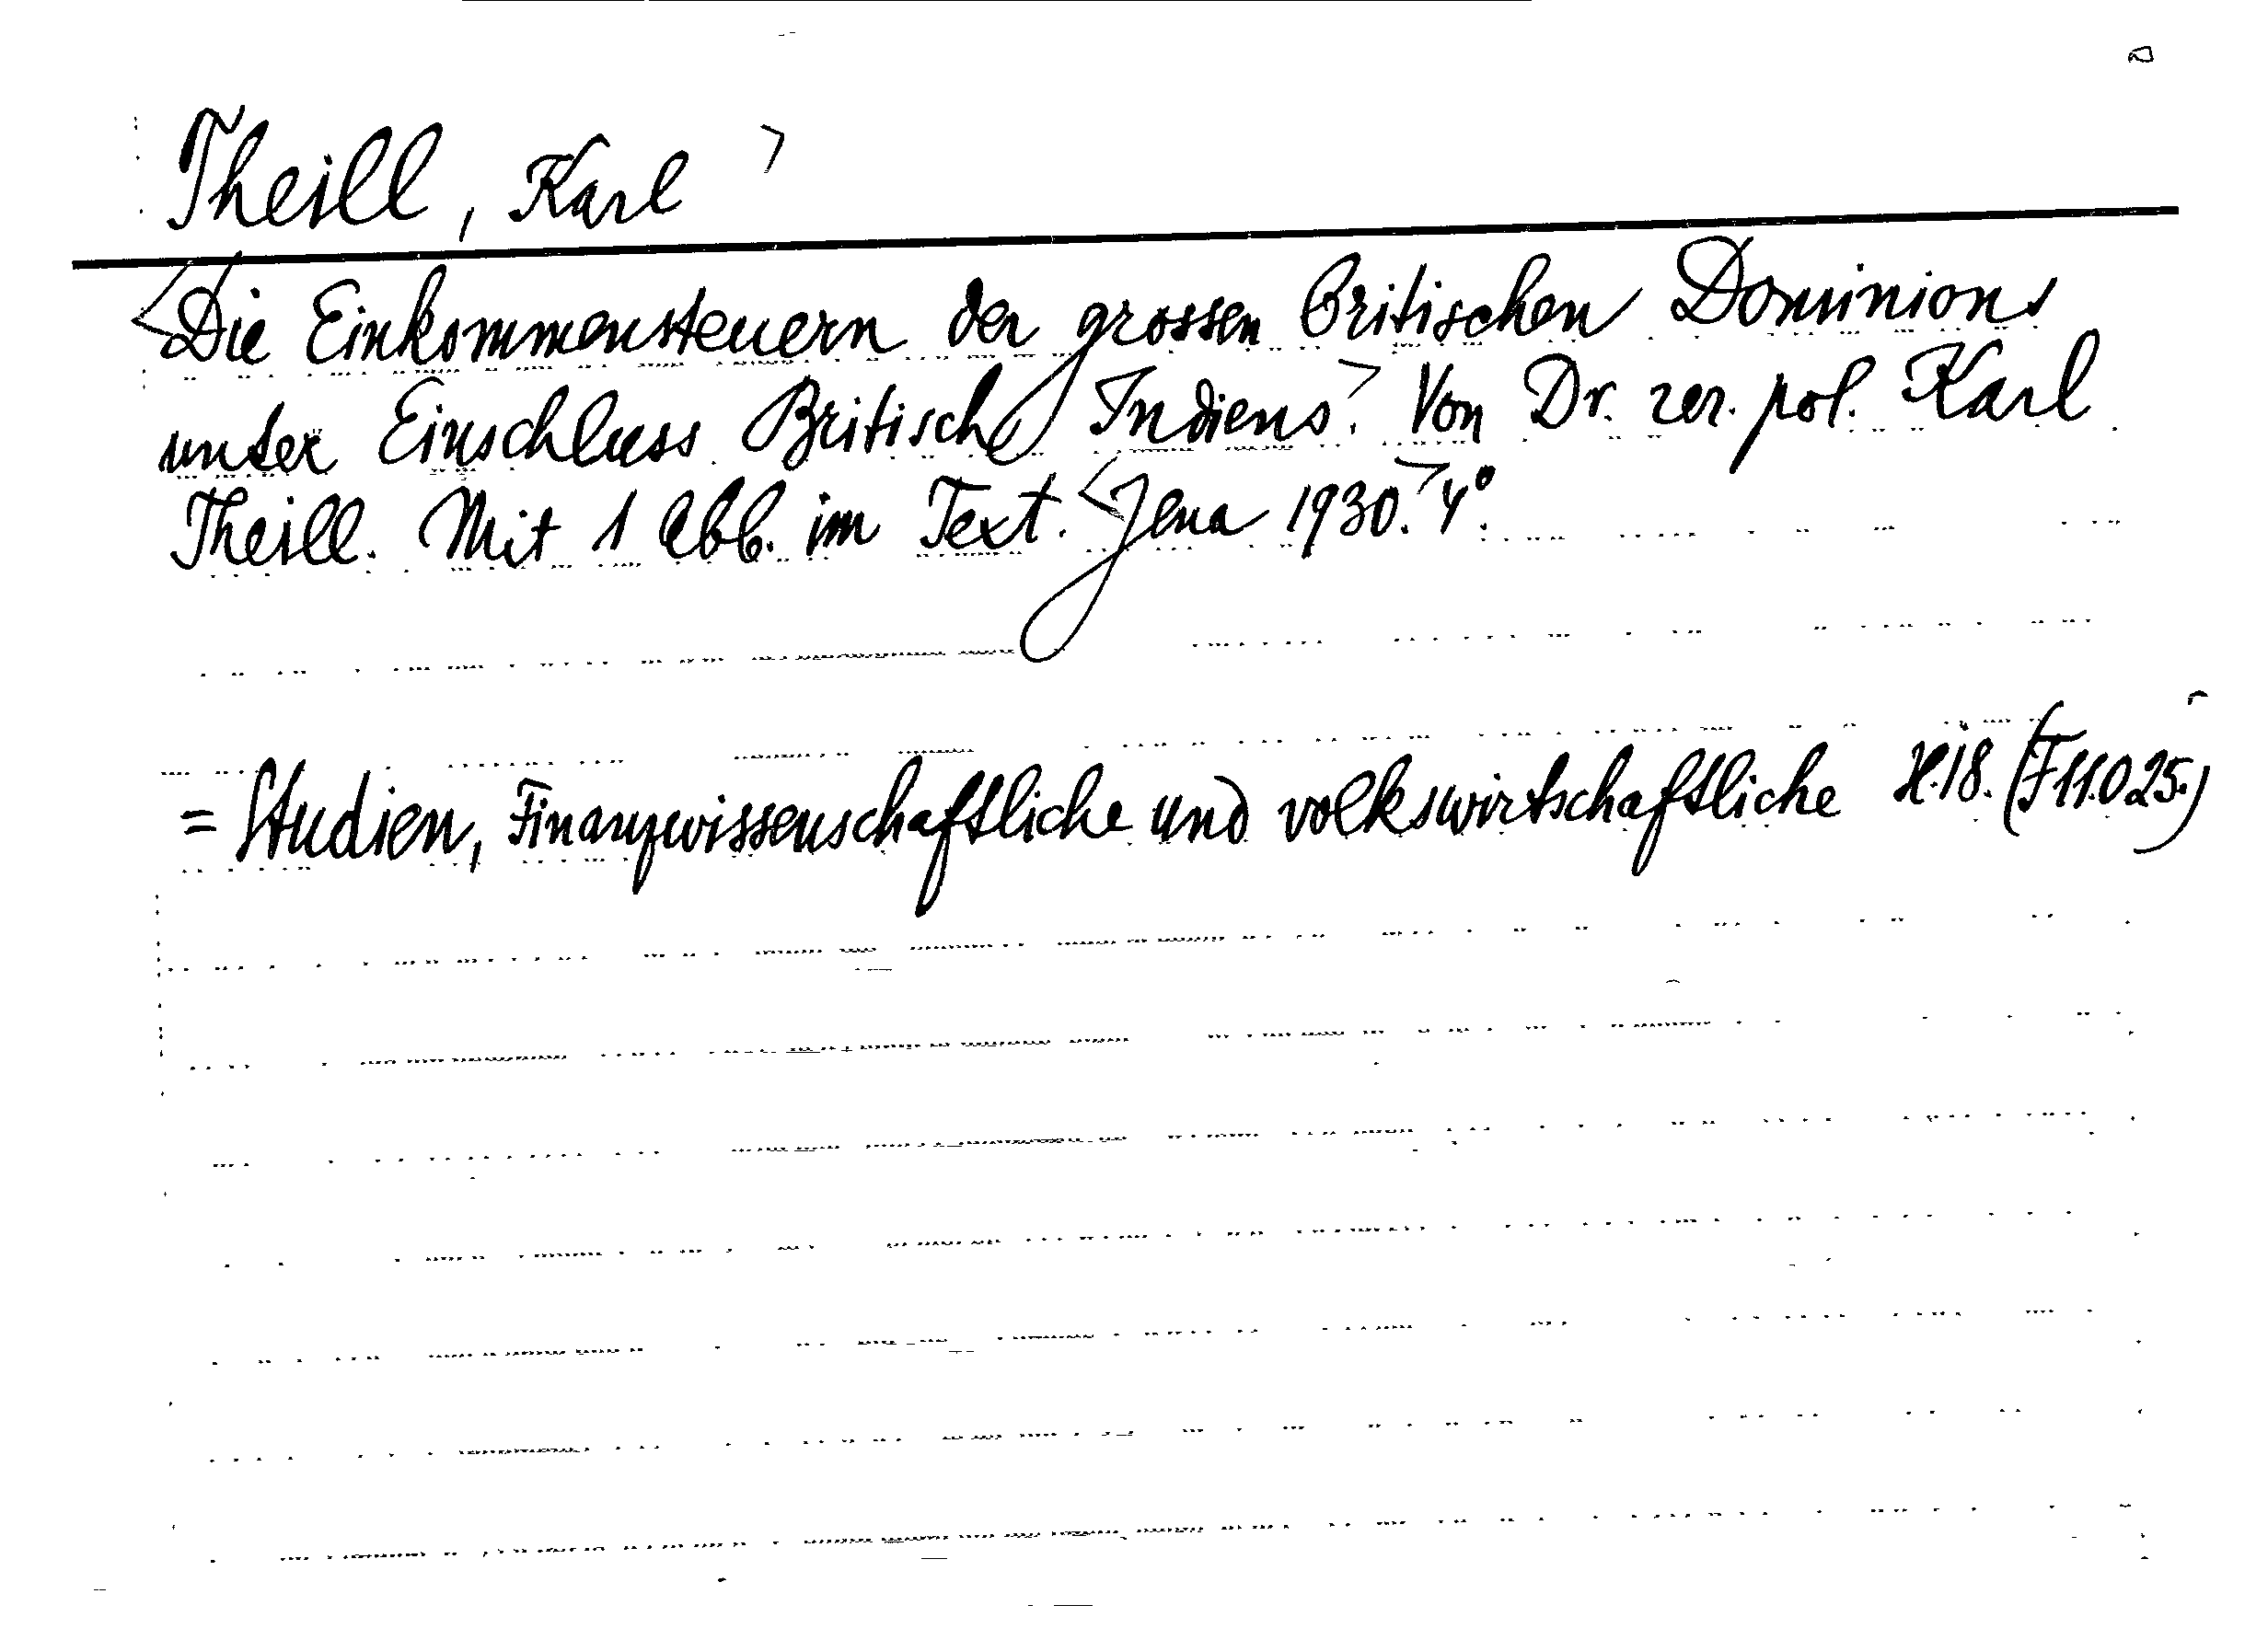 Theill, Karl >
<Die Einkommensteuern der grossen Britischen Dominions
unter Einschluss Britisch Indiens.> Von Dr. rer. pol. Karl
Theill. Mit 1 Abb. im Text. <Jena 1930.> 4°.
= Studien, Finanzwissenschaftliche und volkswirtschaftliche H. 18. (F 11.025.)